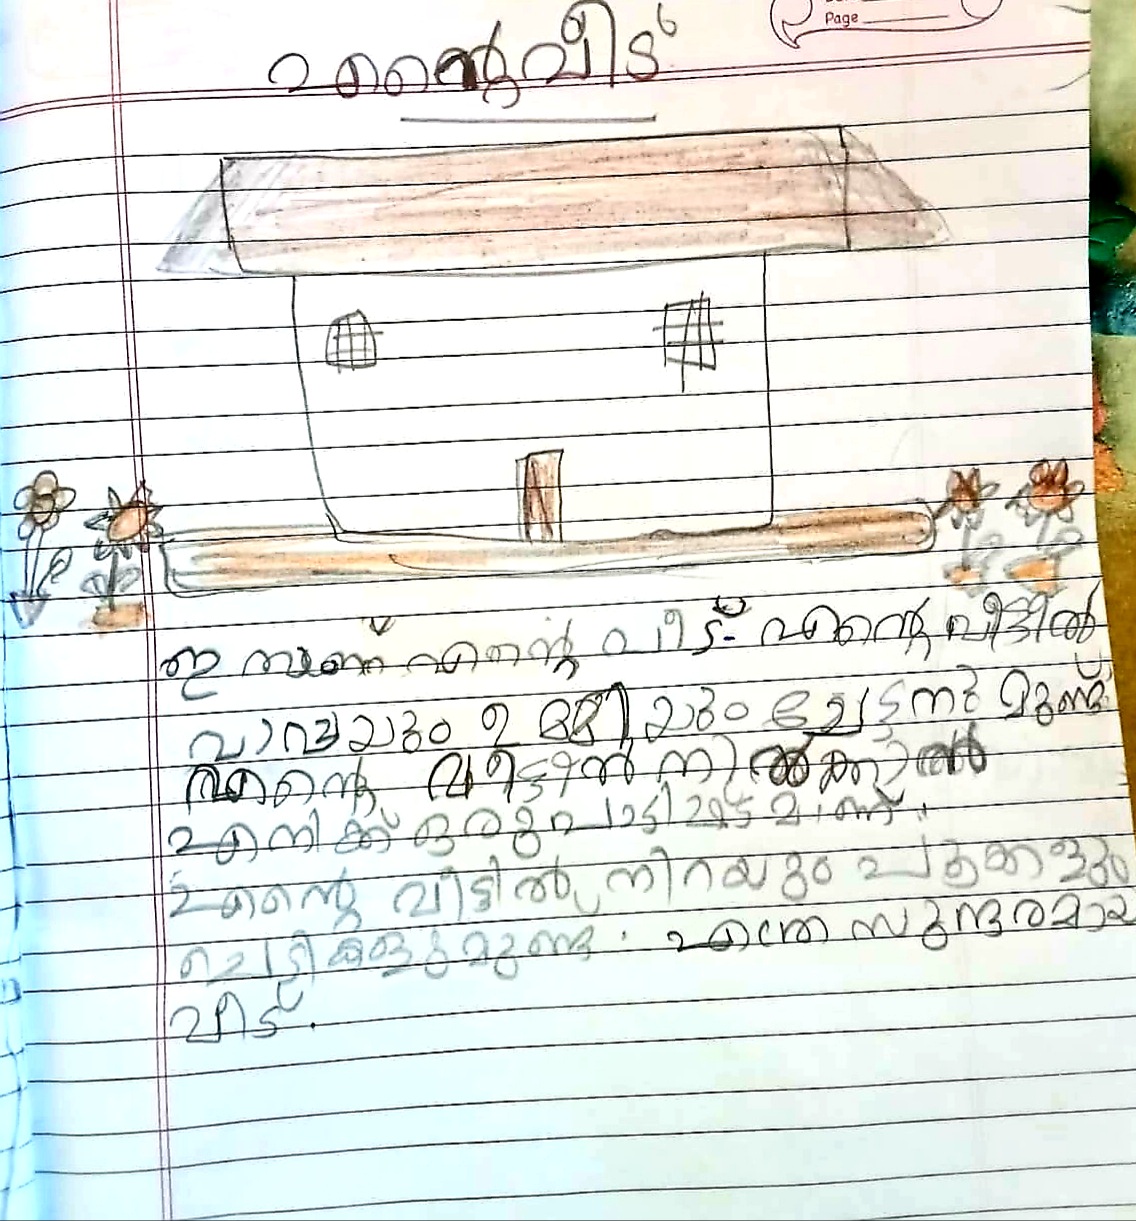 Page
എന്റെ വീട്
ഇതാണ് എന്റെ വീട്. എന്റെ വീട്ടിൽ
വാവയും ഉമ്മിയും ചേട്ടനുമുണ്ട്
എന്റെ വീട്ടിൽ നിൽക്കാൻ
എനിക്ക് ഒരുപാടിഷ്ടമാണ്.
എന്റെ വീട്ടിൽ നിറയും പൂക്കളും
ചെടികളുമുണ്ട്. എത്ര സുന്ദരമായ
വീട്.